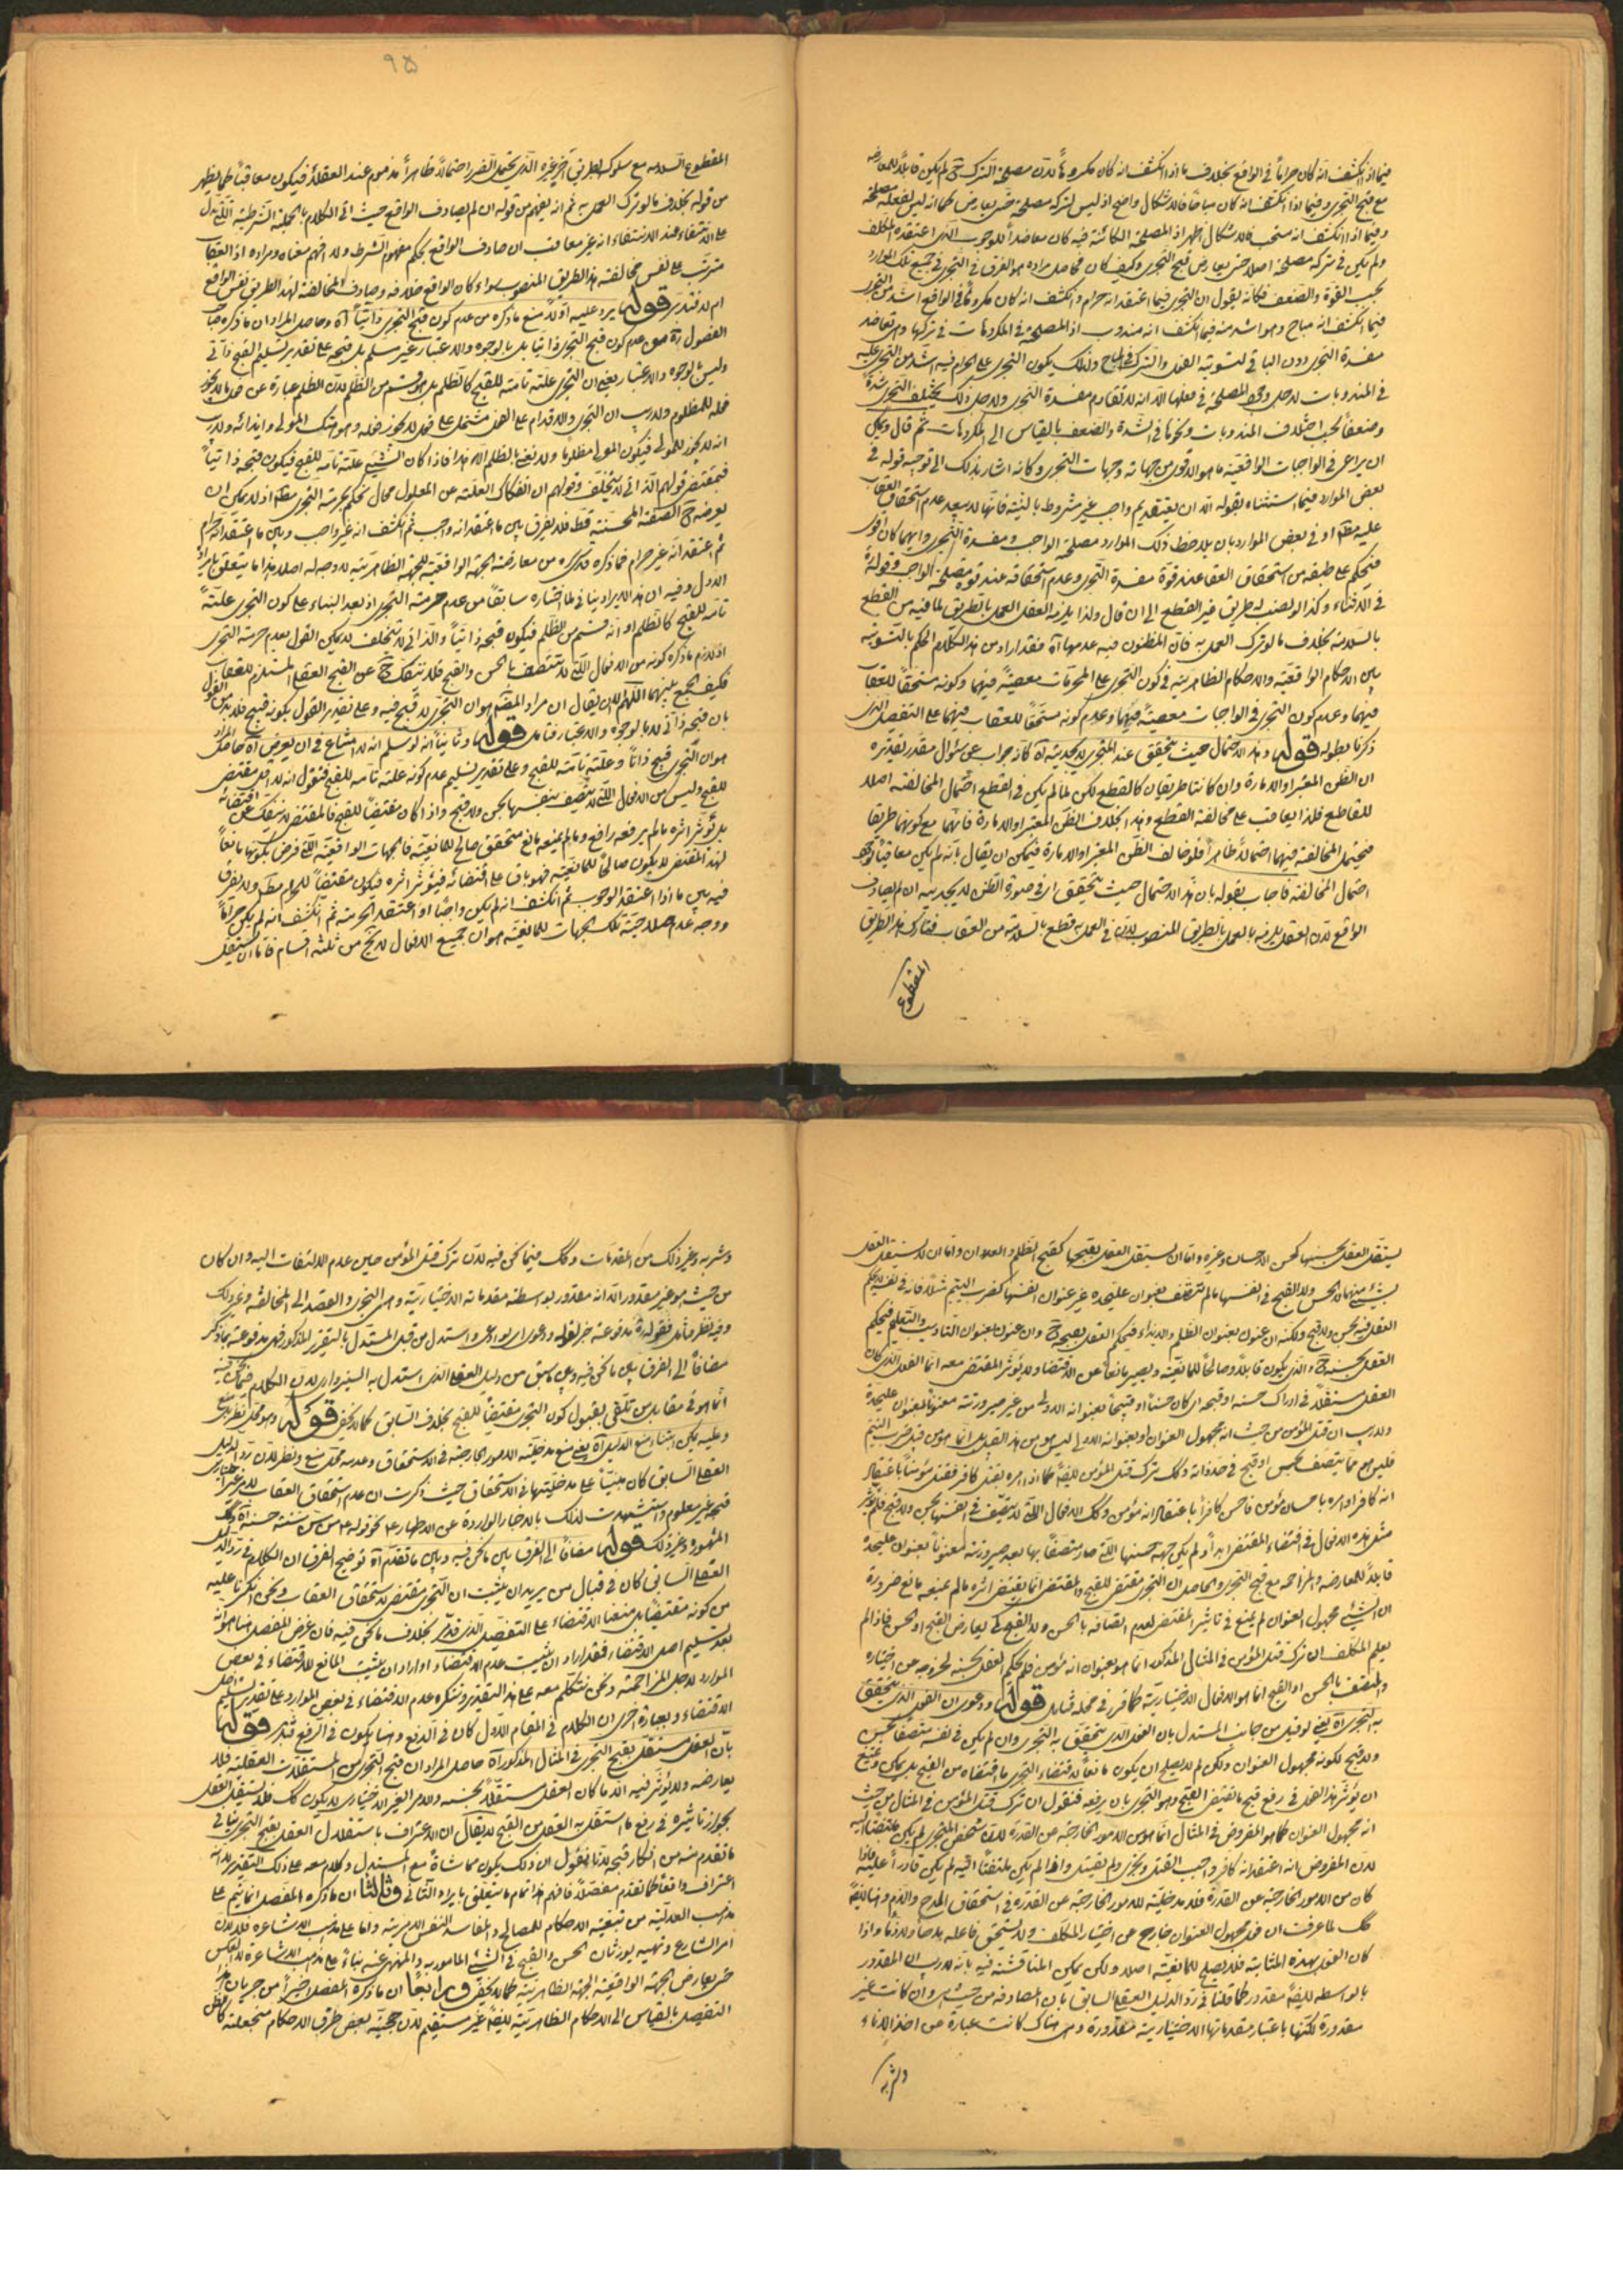 فيما اذا انكشف انه كان حراماً فى الواقع بخلاف ما اذا انكشف انه كان مكروهاً لان مصلحة الترك ح لم يكن قابلاً للمعارضه
مع قبح التجرى وفيما اذا انكشف انه كان مباحاً فالاشكال واضح اذ ليس لتركه مصلحة حتى يعارض كما انه ليس لفعله مصلحة
وفيما اذا انكشف انه مستحب فالاشكال اظهر اذ المصلحة الكائنة فيه كان معاضداً للوجوب الذى اعتقده المكلف
ولم يكن فى تركه مصلحة اصلا حتى يعارض قبح التجرى وكيف كان فحاصل مراده هو الفرق فى التجرى فى جميع تلك الموارد
بحسب القوة والضعف فكانه يقول ان التجرى فيما اعتقد انه حرام وانكشف انه كان مكروهاً فى الواقع اشد من التجرى
فيما انكشف انه مباح وهو اشد منه فيما انكشف انه مندوب اذ المصلحة فى المكروهات فى تركها وهى تعاضد
مفسدة التجرى دون الباقى لتسوية الفعل والترك فى المباح ولذلك يكون التجرى على الحرام فيه اشد من التجرى عليه
فى المندوبات لاجل وجود المصلحة فى فعلها الا انه لا تقاوم مفسدة التجرى ولاجل ذلك يختلف التجرى شدة
وضعفاً بحسب اختلاف المندوبات ونحوها فى الشدة والضعف بالقياس الى المكروهات ثم قال ويمكن
ان يراعى فى الواجبات الواقعية ما هو الاقوى من جهاته وجهات التجرى وكانه اشار بذلك الى توجيه قوله فى
بعض الموارد فيما استثناه بقوله الا ان يعتقد تحريم واجب غير مشروط بالنية فانها لا يبعد عدم استحقاق العقاب
عليه مطلقا او فى بعض الموارد بان يلاحظ ذلك الموارد مصلحة الواجب ومفسدة التجرى وايهما كان اقوى
فيحكم على طبقه من استحقاق العقاب عند قوة مفسدة التجرى وعدم استحقاقه عند قوة مصلحة الواجب وقوله
فى الاثناء وكذا لو نصب له طريق غير القطع الى ان قال ولذا يلزمه العقل العمل بالطريق لما فيه من القطع
بالسلامة بخلاف ما لو ترك العمل به فان المظنون فيه عدمها آه فقد اراد من هذا الكلام الحكم بالتسوية
بين الاحكام الواقعية والاحكام الظاهرية فى كون التجرى على المحرمات معصية فيهما وكونه مستحقاً للعقاب
فيهما وعدم كون التجرى فى الواجبات معصية فيهما وعدم كونه مستحقاً للعقاب فيهما على التفصيل الذى
ذكرنا بطوله قوله وهذا الاحتمال حيث يتحقق عند المتجرى لا يجديه آه كأنه جواب عن سؤال مقدر تقديره
ان الظن المعتبر او الامارة وان كانتا طريقان كالقطع لكن لما لم يكن فى القطع احتمال المخالفة اصلا
للقاطع فلذا يعاقب على مخالفة القطع وهذا بخلاف الظن المعتبر او الامارة فانهما مع كونهما طريقا
فيحتمل المخالفة فيهما احتمالاً ظاهراً فلو خالف الظن المعتبر او الامارة فيمكن ان يقال بانه لم يكن معاقباً لوجود
احتمال المخالفة فاجاب بقوله بان هذا الاحتمال حيث يتحقق اى فى صورة الظن لا يجديه ان لم يصادف
الواقع لان العقل يلزمه بالعمل بالطريق المنصوب لان فى العمل به قطع بالسلامة من العقاب فتارك هذا الطريق
المقطوع
٩٥
المقطوع السلامه مع سلوك لطريق آخر غيره الذى يحتمل الضرر احتمالاً ظاهراً مذموم عند العقلاء فيكون معاقباً كما يظهر
من قوله بخلاف ما لو ترك العمل به نعم انه يفهم من قوله ان لم يصادف الواقع حيث اتى الكلام بالجملة الشرطية التى تدل
على الانتفاء عند الانتفاء انه غير معاقب ان صادف الواقع بحكم مفهوم الشرط ولم افهم معناه ومراده اذ العقاب
مترتب على نفس مخالفة هذا الطريق المنصوب سواء كان الواقع خلافه وصادف المخالفة لهذا الطريق نفس الواقع
ام لا فتدبر قوله يرد عليه اولا منع ما ذكره من عدم كون قبح التجرى ذاتيا آه وحاصل المراد ان ما ذكره صاحب
الفصول ره من عدم كون قبح التجرى ذاتيا بل بالوجوه والاعتبار غير مسلم بل قبحه على تقدير تسليم القبح ذاتى
وليس بالوجوه والاعتبار يعنى ان التجرى علته تامة للقبح كالظلم بل هو قسم من الظلم لان الظلم عبارة عن فعل ما لا يجوز
فعله للمظلوم ولا ريب ان التجرى والاقدام على الفعل مشتمل على فعل لا يجوز فعله وهو هتك المولى وايذائه ولا ريب
انه لا يجوز للمولى فيكون المولى مظلوما ولا يعنى بالظلم الا هذا فاذا كان الشيء علته تامه للقبح فيكون قبحه ذاتيا
فبمقتضى قولهم الذاتى لا يتخلف وقولهم ان انفكاك العلة عن المعلول محال نحكم بحرمة التجرى مطلقا اذ لا يمكن ان
يعرضه ح الصفة المحسنة قط فلا يفرق بين ما اعتقد انه واجب ثم انكشف انه غير واجب وبين ما اعتقد انه حرام
ثم اعتقد انه غير حرام فما ذكره قدس سره من معارضة الجهة الواقعية للجهة الظاهرية لا وجه له اصلا هذا ما يتعلق بايراد
الاول وفيه ان هذا الايراد ينافى لما اختاره سابقاً من عدم حرمة التجرى اذ بعد البناء على كون التجرى علته
تامه للقبح كالظلم او انه قسم من الظلم فيكون قبحه ذاتياً والذاتى لا يتخلف لا يمكن القول بعدم حرمة التجرى
اذ لازم ما ذكره كونه من الافعال التى لا تتصف بالحسن والقبح فلا تنفك ح عن القبح العقلى المستلزم للعقاب
فكيف الجمع بينهما اللهم الا ان يقال ان مراد المصنف هو ان التجرى لا قبح فيه وعلى تقدير القول بكونه قبيح فلا بد من القول
بان قبحه ذاتى لا بالوجوه والاعتبار فتامل قوله وثانيا انه لو سلم انه لا امتناع فى ان يعرض آه حاصل المراد
هو ان التجرى قبيح ذاتا وعلته تامة للقبح وعلى تقدير تسليم عدم كونه علته تامه للقبح فنقول انه لا اقل مقتضى
للقبح وليس من الافعال التى لا تتصف بنفسها بحسن ولا قبح واذا كان مقتضيا للقبح فالمقتضى لا ينفك عن اقتضائه
بل تؤثر اثره ما لم يرفعه رافع وما لم يمنعه مانع متحقق صالح للمانعية فالجهات الواقعية التى فرض بكونها مانعاً
لهذا المقتضى لا يكون صالحاً للمانعية فهو باق على اقتضائه فيؤثر اثره فيكون مقتضياً للحرام مطلقا ولا يفرق
فيه بين ما اذا اعتقد الوجوب ثم انكشف انه لم يكن واجبا او اعتقد الحرمة ثم انكشف انه لم يكن حراماً
ووجه عدم صلاحية تلك الجهات للمانعية هو ان جميع الافعال لا يخ من ثلثة اقسام فاما ان يستقل
يستقل العقل بحسنها كحسن الاحسان وغيره واما ان يستقل العقل بقبحها كقبح الظلم والعدوان واما ان لا يستقل العقل
بشئ منهما لا بحسن ولا القبح فى انفسها ما لم تتصف بعنوان عليحدة غير عنوان انفسها كضرب اليتيم مثلا فانه فى نفسه لا يحكم
العقل فيه بحسن ولا قبح ولكنه ان عنون بعنوان الظلم والايذاء فيحكم العقل بقبحه ح وان عنون بعنوان التاديب والتعليم فيحكم
العقل بحسنه ح والذى يكون قابلاً وصالحاً للمانعية ويصير مانعاً عن الاقتضاء ولا يؤثر المقتضى معه انما الفعل الذى كان
العقل مستقلاً فى ادراك حسنه او قبحه اى كان حسناً او قبيحاً بعنوانه الاولى من غير صيرورته معنوناً بعنوان عليحدة
ولا ريب ان قتل المؤمن من حيث انه مجهول العنوان وبعنوانه الاولى ليس هو من هذا القبيل بل انما هو من قبيل ضرب اليتيم
فليس هو مما يتصف بحسن او قبح فى حد ذاته وكك ترك قتل المؤمن ايضاً كما اذا امره بقتل كافر فقتل مؤمناً باعتقاد
انه كافر او امره باحسان مؤمن فاحسن كافراً باعتقاد انه مؤمن وكك الافعال التى لا تتصف فى انفسها بحسن ولا قبح فلم يؤثر
مثل هذه الافعال فى اقتضاء المقتضى ابداً ولم يكن جهة حسنها التى صار متصفاً بها بعد صيرورته لمعنوناً بعنوان عليحدة
قابلاً للمعارضه والمزاحمه مع قبح التجرى والحاصل ان التجرى مقتضى للقبح والمقتضى انما يقتضى اثره ما لم يمنعه مانع ضرورة
ان الشئ مجهول العنوان لم يمنع فى تاثير المقتضى لعدم اتصافه بالحسن ولا القبح لكى يعارض القبح او الحسن فاذا لم
يعلم المكلف ان ترك قتل المؤمن فى المثال المذكور انما هو بعنوان انه مؤمن فلم يحكم العقل بحسنه لخروجه عن اختياره
والمتصف بالحسن او القبح انما هو الافعال الاختيارية كما قرر فى محله فتامل قوله ودعوى ان الفعل الذى يتحقق
به التجرى آه يعنى لو قيل من جانب المستدل بان الفعل الذى يتحقق به التجرى وان لم يكن فى نفسه متصفاً بحسن
ولا قبح لكونه مجهول العنوان ولكن لم لا يصلح ان يكون مانعاً لاقتضاء التجرى ما اقتضاه من القبح بل يمكن ويمنع
ان يؤثر هذا الفعل فى رفع قبح ما يقتضى القبح وهو التجرى بان يرفعه فنقول ان ترك قتل المؤمن فى المثال من حيث
انه مجهول العنوان كما هو المفروض فى المثال انما هو من الامور الخارجة عن القدرة لان شخص المتجرى لم يكن ملتفتاً اليه
لان المفروض انه اعتقد انه كافر واجب القتل وتجرى ولم يقتله واذا لم يكن ملتفتاً اليه لم يكن قادراً عليه فاذا
كان من الامور الخارجة عن القدرة فلا مدخلية للامور الخارجة عن القدرة فى استحقاق المدح والذم وهنا ايضاً
كك لما عرفت ان فعل مجهول العنوان خارج عن اختيار المكلف ولا يستحق فاعله مدحاً ولا ذماً واذا
كان الفعل بهذه المثابة فلا يصلح للمانعية اصلا ولكن يمكن المناقشة فيه بانه لا ريب ان المقدور
بالواسطه ايضاً مقدور كما قلنا فى رد الدليل العقلى السابق بان المصادفة من حيث هى وان كانت غير
مقدورة لكنها باعتبار مقدماتها الاختيارية مقدورة وهى هناك كانت عبارة عن اخذ الاناء
وشربه
وشربه وغير ذلك من المقدمات وكك فيما نحن فيه لان ترك قتل المؤمن حين عدم الالتفات اليه وان كان
من حيث هو غير مقدور الا انه مقدور بواسطة مقدماته الاختيارية وهى التجرى والقصد الى المخالفة وغير ذلك
وفيه نظر فتأمل
مضافاً الى الفرق بين ما نحن فيه وبين ما سبق من دليل العقل الذى استدل به السبزوارى لان الكلام فيما نحن فيه
انما هو فى مقابل من تلقى بقبول كون التجرى مقتضياً للقبح بخلاف السابق كما لا يخفى قوله
وعليه يمكن ابتناء منع الدليل آه يعنى منع مدخلية الامور الخارجة فى الاستحقاق وعدمه محل منع ونظر لان رد الدليل
العقلى السابق كان مبنياً على مدخليتها فى الاستحقاق حيث ذكرت ان عدم استحقاق العقاب لامر غير اختيارى
قبحه غير معلوم واستشهدت لذلك بالاخبار الواردة عن الاطهار ع نحو قوله ع من سن سنة حسنة آه وكك
المشهورة وغير ذلك قوله مضافاً الى الفرق بين ما نحن فيه وبين ما تقدم آه توضيح الفرق ان الكلام فى رد الدليل
العقلى السابق كان فى قبال من يريد ان يثبت ان التجرى مقتضى لاستحقاق العقاب ونحن انكرنا عليه
من كونه مقتضياً بل منعنا الاقتضاء على التفصيل الذى قدمر بخلاف ما نحن فيه فان غرض المفصل هنا هو انه
بعد تسليم اصل الاقتضاء فقد اراد ان يثبت عدم الاقتضاء او اراد ان يثبت المانع للاقتضاء فى بعض
الموارد لاجل المزاحمة ونحن نتكلم معه على هذا التقدير وننكره عدم الاقتضاء فى بعض الموارد على تقدير تسليم اصل
الاقتضاء وبعبارة اخرى ان الكلام فى المقام الاول كان فى الدفع وهنا يكون فى الرفع فتدبر قوله
بان العقل مستقل بقبح التجرى فى المثال المذكور آه حاصل المراد ان قبح التجرى من المستقلات العقلية فلا
يعارضه ولا يؤثر فيه الا ما كان العقل مستقلا بحسنه والامر الغير الاختيارى لا يكون كك فلا يستقل العقل
بجواز تاثيره فى رفع ما استقل به العقل من القبح لا يقال ان الاعتراف باستقلال العقل بقبح التجرى ينافى
ما تقدم منه من انكار قبحه لانا نقول ان ذلك يكون مماشاة مع المستدل وكلام معه على ذلك التقدير لا انه
اعتراف واقعاً كما تقدم مفصلاً فافهم هذا تمام ما يتعلق بايراد الثانى وثالثا ان ما ذكره المفصل انما يتم على
مذهب العدلية من تبعية الاحكام للمصالح والمفاسد النفس الامرية واما على مذهب الاشاعره فلا لان
امر الشارع ونهيه يورثان الحسن والقبح فى الشئ المامور به والمنهى عنه بناءً على مذهب الاشاعرة لا العكس
حتى يعارض الجهة الواقعية الجهة الظاهرية كما لا يخفى ورابعا ان ما ذكره المفصل اخيراً من جريان هذا
التفصيل بالقياس الى الاحكام الظاهرية ايضاً غير مستقيم لان حجية بعض طرق الاحكام منجعلة كالظن